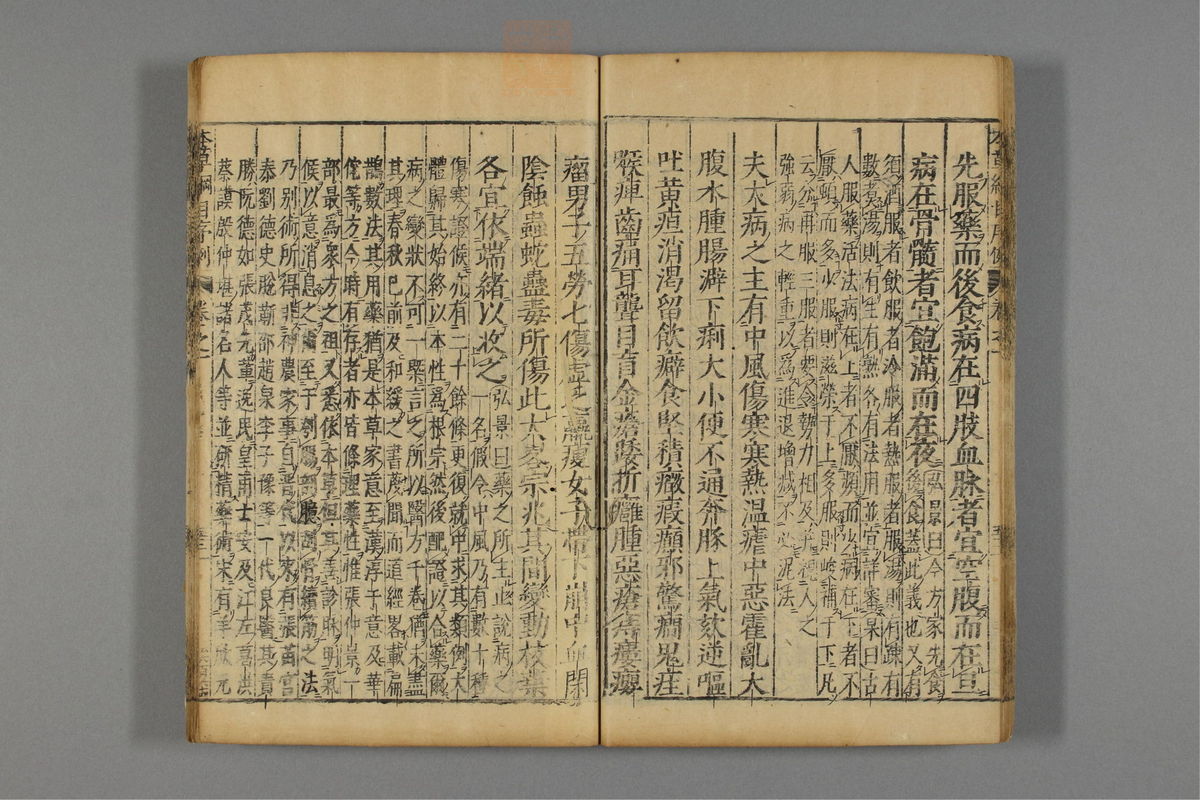 先服藥而後食病在四肢血脉者宜空腹而在旦
病在骨髓者宜飽滿而在夜弘景曰今方家先食
後食蓋此義也又有
須酒服者飲服者冷服者熱服者服湯則有疎有
數煑湯則有生有熟各有法用並宜詳審杲曰古
人服藥活法病在上者不厭頻而少病在下者不
厭頓而多少服則滋榮于上多服則峻補于下凡
云分再服三服者要令勢力相及并視人之
強弱病之輕重以爲進退增減不必泥法
夫大病之主有中風傷寒寒熱溫瘧中惡霍亂大
腹水腫腸澼下痢大小便不通奔豚上氣欬逆嘔
吐黃疸消渴留飲癖食堅積癥瘕癲邪驚癇鬼疰
喉痺齒痛耳聾目盲金瘡踒折癰腫惡瘡痔瘻癭
瘤男子五勞七傷虛乏羸瘦女子帶下崩中血閉
陰蝕蟲蛇蠱毒所傷此大畧宗兆其間變動枝葉
各宜依端緒以收之弘景曰藥之所主止說病之
一名假令中風乃有數十種
傷寒證候亦有二十餘條更復就中求其類例大
體歸其始終以本性爲根宗然後配證以合藥爾
病之變狀不可一槩言之所以醫方千卷猶未盡
其理春秋已前及和緩之書蔑聞而道經畧載扁
鵲數法其用藥猶是本草家意至漢淳于意及華
佗等方今時有存者亦皆條理藥性惟張仲景一
部最爲衆方之祖又悉依本草但其善診脉明氣
候以意消息之爾至于刳腸剖臆刮骨續筋之法
乃別術所得非神農家事自晉代以來有張苗宮
泰劉德史脫蘄邵趙泉李子豫等一代良醫其貴
勝阮德如張茂先輩逸民皇甫士安及江左葛洪
蔡謨殷仲堪諸名人等並研精藥術宋有羊欣元